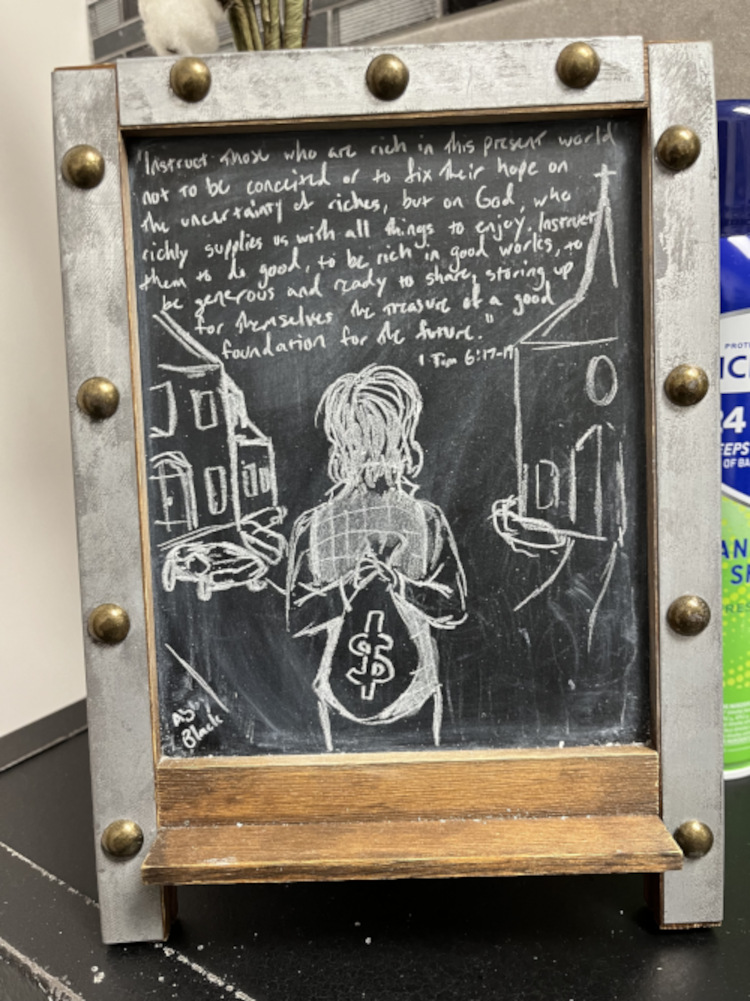 "Instruct those who are rich in this present world
not to be conceited or to fix their hope on
the uncertainty of riches, but on God, who
richly supplies us with all things to enjoy. Instruct
them to do good, to be rich in good works, to
be generous and ready to share, storing up
for themselves the treasure of a good
foundation for the future."
1 Tim 6:17-19
$
Black
PROT
IC
24
EEPS
OF BA
AN